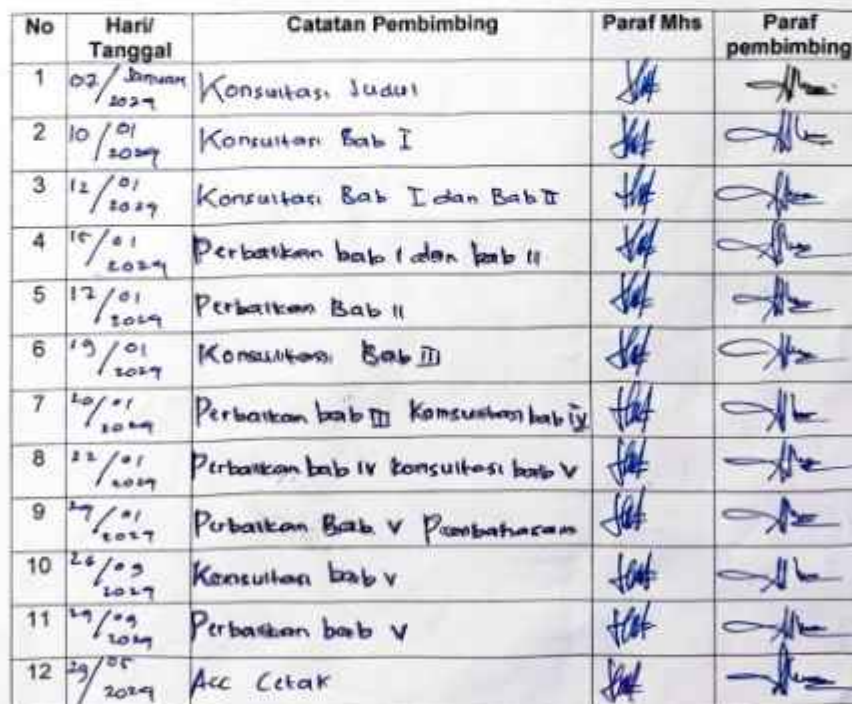 No Hari/ Tanggal Catatan Pembimbing Paraf Mhs Paraf pembimbing
1 02/Januari 2024 Konsultasi Judul
2 10/01 2024 Konsultasi Bab I
3 12/01 2024 Konsultasi Bab I dan Bab II
4 15/01 2024 Perbaikan bab I dan bab II
5 17/01 2024 Perbaikan Bab II
6 19/01 2024 Konsultasi Bab III
7 20/01 2024 Perbaikan bab III Konsultasi bab IV
8 22/01 2024 Perbaikan bab IV konsultasi bab V
9 /01 2024 Perbaikan Bab V Pembahasan
10 2024 Konsultasi bab V
11 2024 Perbaikan bab V
12 2024 Acc Cetak